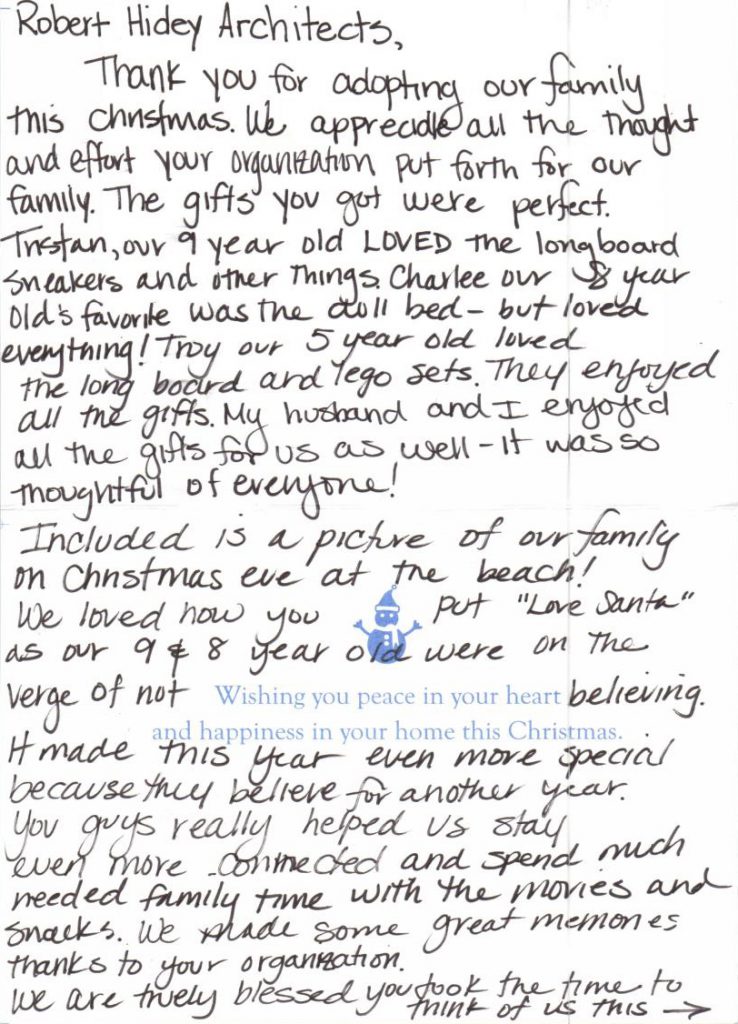 Robert Hidey Architects,
Thank you for adopting our family
this christmas. We appreciate all the thought
and effort your organization put forth for our
family. The gifts you got were perfect.
Tristan, our 9 year old LOVED the longboard
sneakers and other things. Charlee our 8 year
old's favorite was the doll bed - but loved
everything! Troy our 5 year old loved
the long board and lego sets. They enjoyed
all the gifts. My husband and I enjoyed
all the gifts for us as well - it was so
thoughtful of everyone!
Included is a picture of our family
on Christmas eve at the beach!
We loved how you put "Love Santa"
as our 9 & 8 year old were on the
verge of not believing.
Wishing you peace in your heart
and happiness in your home this Christmas.
It made this year even more special
because they believe for another year.
You guys really helped us stay
even more connected and spend much
needed family time with the movies and
snacks. We made some great memories
thanks to your organization.
We are truely blessed you took the time to
think of us this →